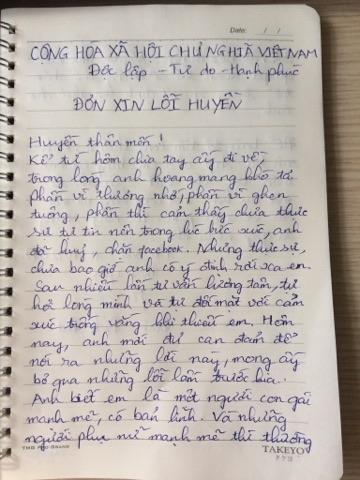 Date: / /
CỘNG HÒA XÃ HỘI CHỦ NGHĨA VIỆT NAM
Độc lập - Tự do - Hạnh phúc
ĐƠN XIN LỖI HUYỀN
Huyền thân mến!
Kể từ hôm chia tay ấy đi về,
trong lòng anh hoang mang khó tả.
Phần vì thương nhớ, phần vì ghen
tuông, phần thì cảm thấy chưa thực
sự tự tin nên trong lúc bức xúc, anh
đã huỷ, chặn facebook. Nhưng thực sự,
chưa bao giờ anh có ý định rời xa em.
Sau nhiều lần tự vấn lương tâm, tự
hỏi lòng mình và tự đối mặt với cảm
xúc trống vắng khi thiếu em. Hôm
nay, anh mới đủ can đảm để
nói ra những lời này, mong ấy
bỏ qua những lỗi lầm trước kia.
Anh biết em là một người con gái
mạnh mẽ, có bản lĩnh. Và những
người phụ nữ mạnh mẽ thì thường
TAKEYO